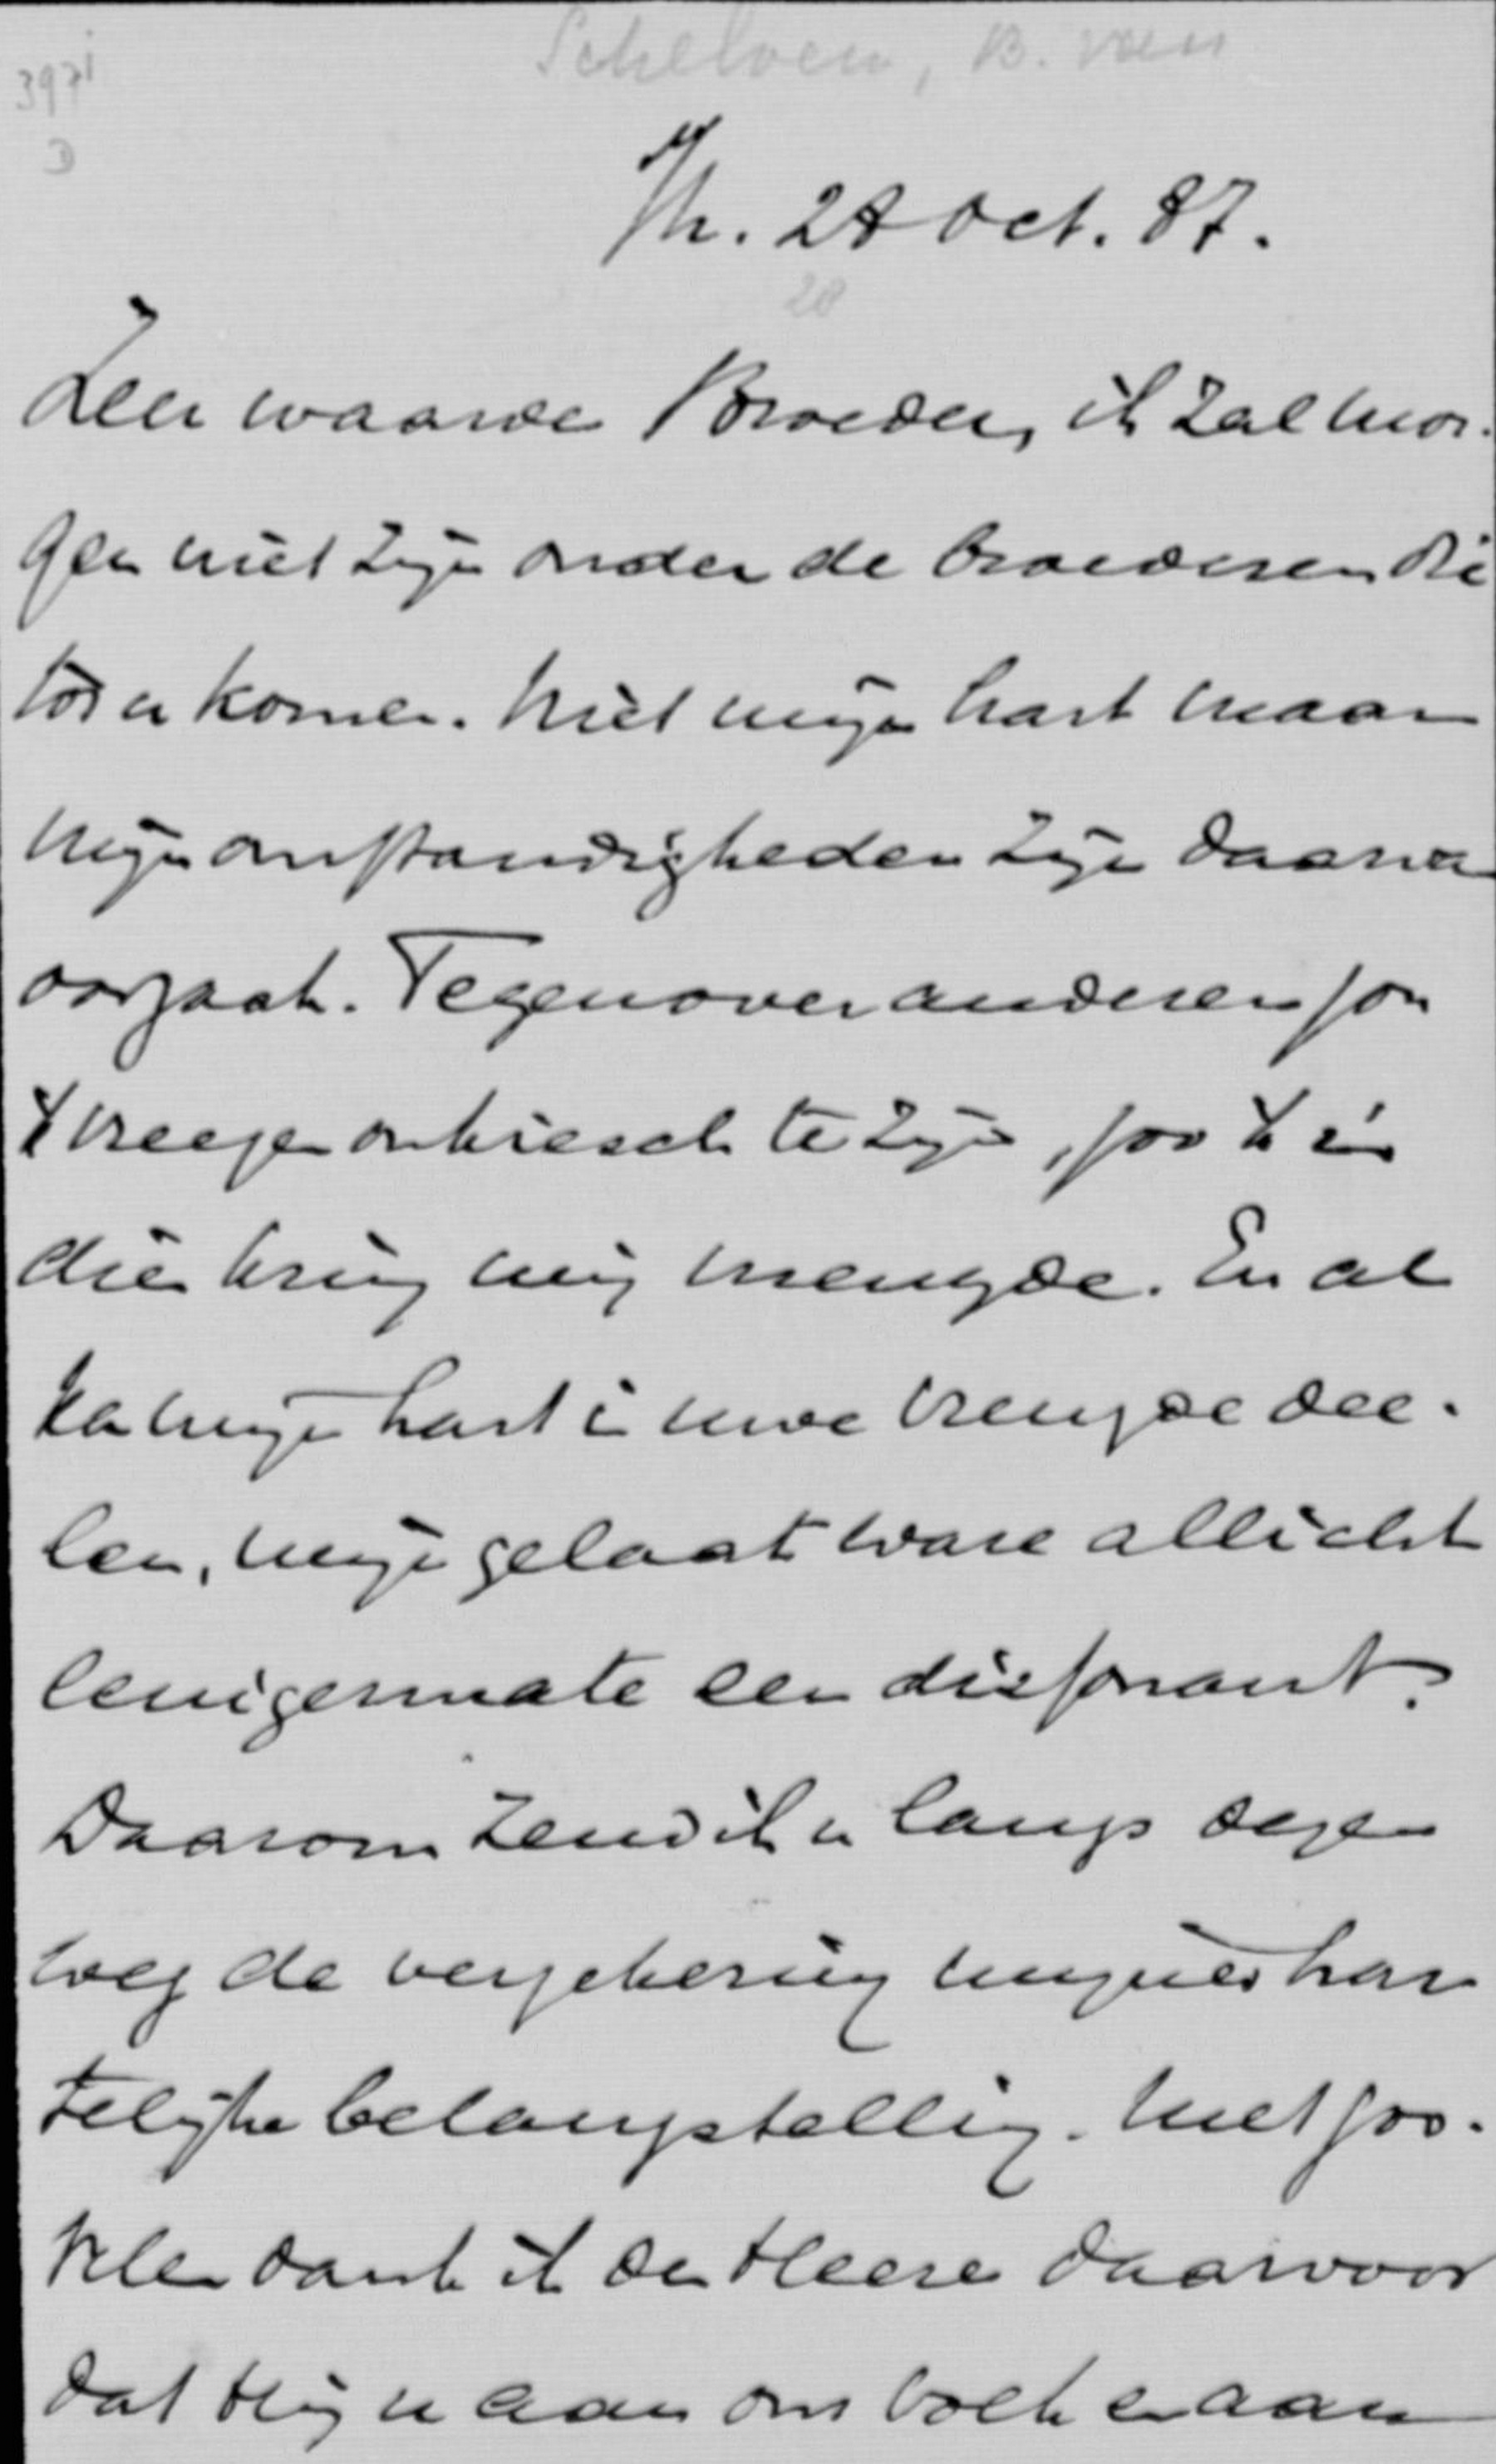 Schelven, B. van
3971
D
Th. 28 Oct. 87.
28
Zeer waarde Broeder, ik zal mor-
gen niet zijn onder de broederen die
tot u komen. Niet mijn hart maar
mijn omstandigheden zijn daarvan
oorzaak. Tegenover anderen zou
ik vreezen onkiesch te zijn, zoo ik in
dien kring mij mengde. En al
kan mijn hart in uwe vreugde dee-
len, mijn gelaat ware allicht
eenigermate een dissonant.
Daarom zend ik u langs dezen
weg de verzekering mijner har
telijke belangstelling. Met zoo-
velen dank ik den Heere daarvoor
dat Hij u aan ons volk en aan